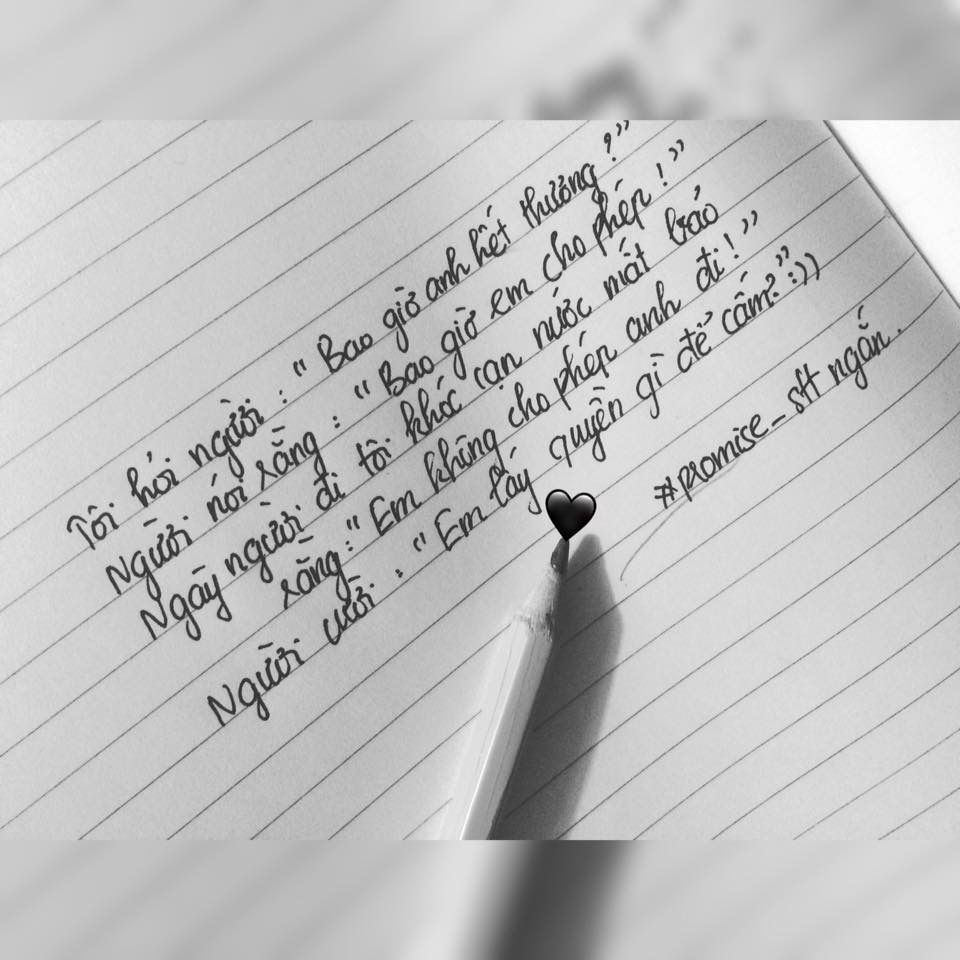 Tôi hỏi người : "Bao giờ anh hết thương ?"
Người nói rằng : "Bao giờ em cho phép ! "
Ngày người đi tôi khóc cạn nước mắt bảo
rằng: "Em không cho phép anh đi ! "
Người cười : "Em lấy quyền gì để cấm?" :))
#promise_stt ngắn.